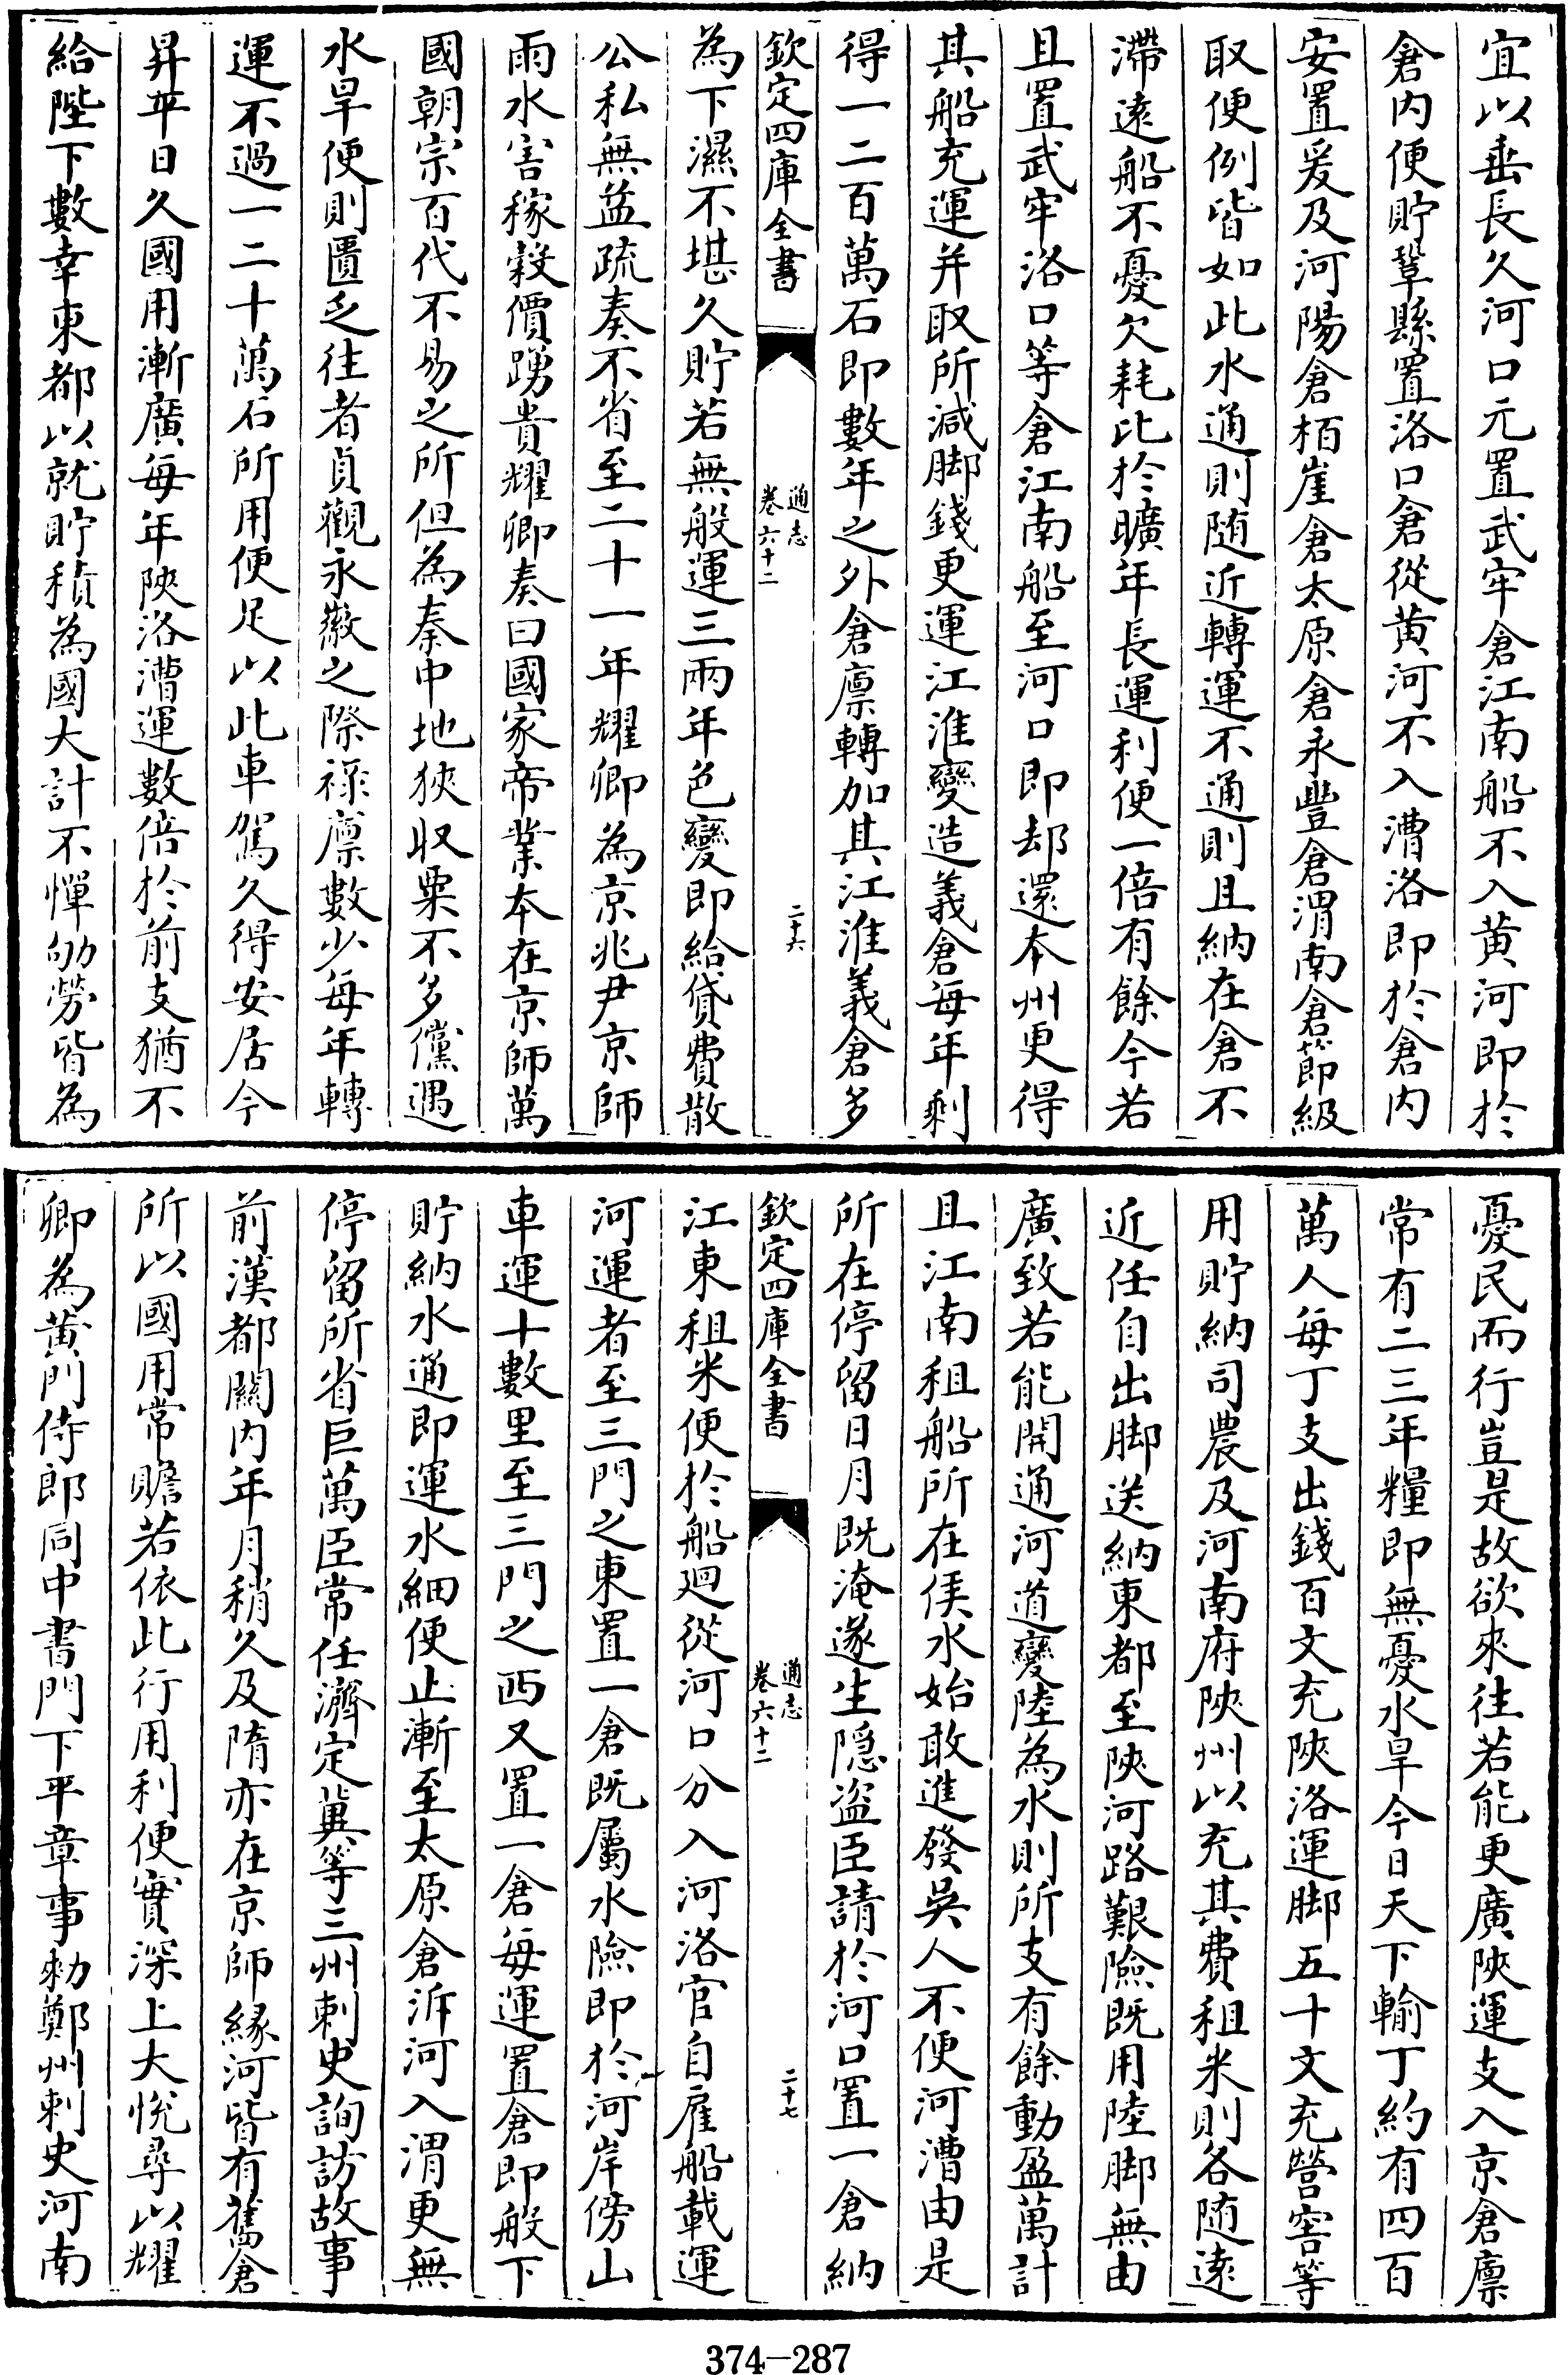 宜以垂長久河口元置武牢倉江南船不入黄河即於
倉内便貯鞏縣置洛口倉從黄河不入漕洛即於倉内
安置爰及河陽倉栢崖倉太原倉永豐倉渭南倉節級
取便例皆如此水通則随近轉運不通則且納在倉不
滯逺船不憂欠耗比於曠年長運利便一倍有餘今若
且置武牢洛口等倉江南船至河口即却還本州更得
其船充運并取所減脚錢更運江淮變造義倉每年剩
得一二百萬石即數年之外倉廪轉加其江淮義倉多
欽定四庫全書
通志
卷六十二
二十六
為下濕不堪久貯若無般運三兩年色變即給貸費散
公私無益疏奏不省至二十一年耀卿為京兆尹京師
雨水害稼穀價踴貴耀卿奏曰國家帝業本在京師萬
國朝宗百代不易之所但為秦中地狹收粟不多儻遇
水旱便則匱乏往者貞觀永徽之際祿廪數少每年轉
運不過一二十萬石所用便足以此車駕久得安居今
昇平日久國用漸廣每年陜洛漕運數倍於前支猶不
給陛下數幸東都以就貯積為國大計不憚劬勞皆為
憂民而行豈是故欲來往若能更廣陜運支入京倉廪
常有二三年糧即無憂水旱今日天下輸丁約有四百
萬人每丁支出錢百文充陜洛運脚五十文充營窖等
用貯納司農及河南府陜州以充其費租米則各随逺
近任自出脚送納東都至陜河路艱險既用陸脚無由
廣致若能開通河道變陸為水則所支有餘動盈萬計
且江南租船所在候水始敢進發吳人不便河漕由是
所在停留日月既淹遂生隠盗臣請於河口置一倉納
欽定四庫全書
通志
卷六十二
二十七
江東租米便於船廻從河口分入河洛官自雇船載運
河運者至三門之東置一倉既屬水險即於河岸傍山
車運十數里至三門之西又置一倉每運置倉即般下
貯納水通即運水細便止漸至太原倉泝河入渭更無
停留所省巨萬臣常任濟定冀等三州刺史詢訪故事
前漢都關内年月稍久及隋亦在京師緣河皆有舊倉
所以國用常贍若依此行用利便實深上大悦尋以耀
卿為黄門侍郎同中書門下平章事勑鄭州刺史河南
374-287